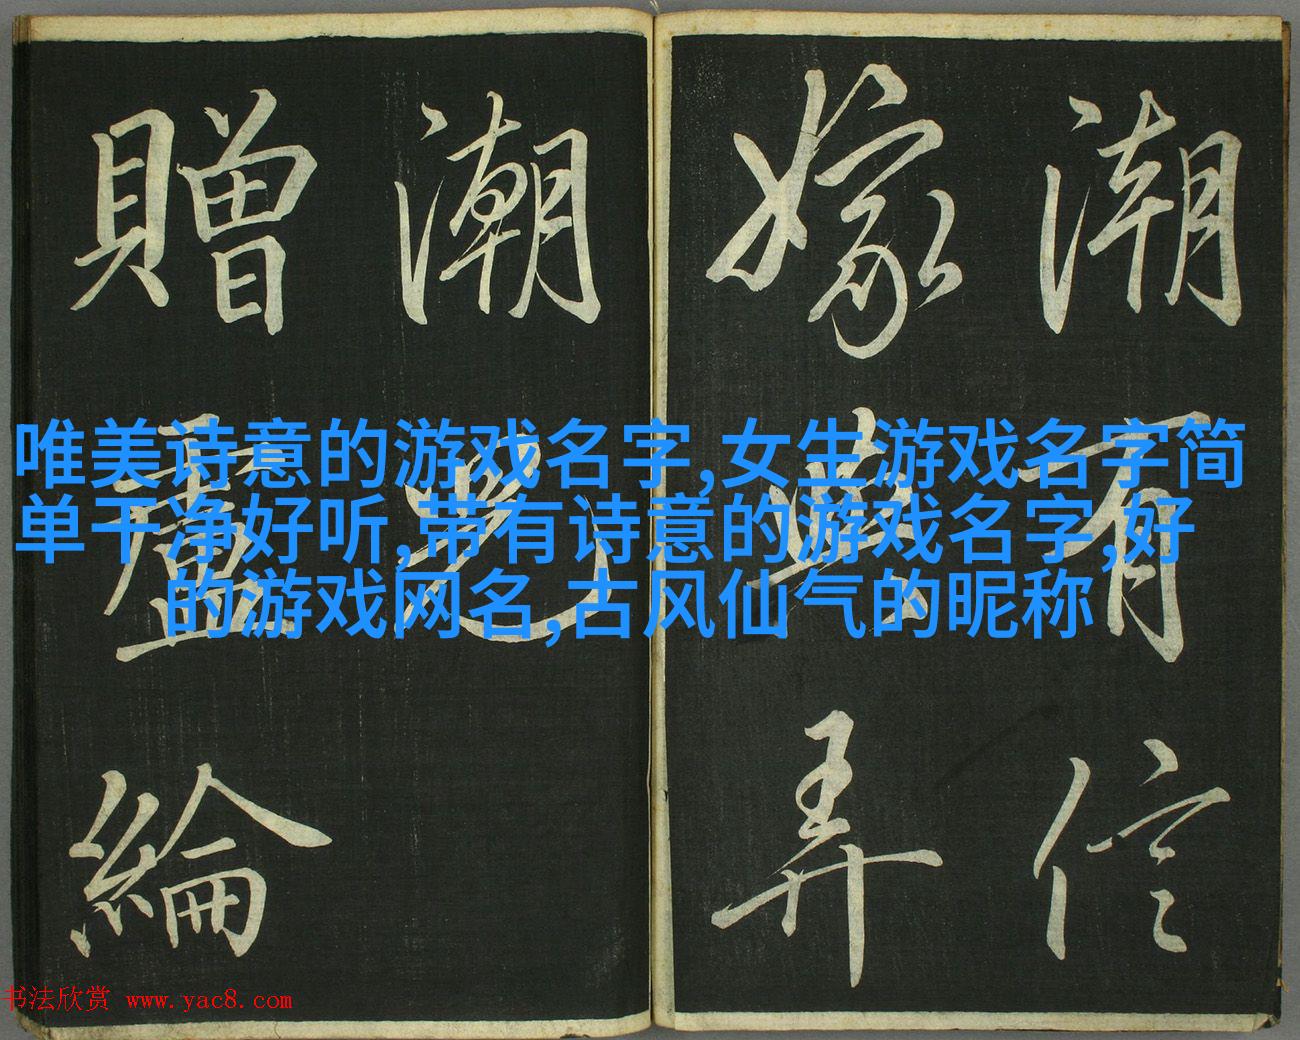 潮有信
嫁與弄
潮兒
贈盧綸
唯美诗意的游戏名字,女生游戏名字简
单干净好听,带有诗意的游戏名字,好
的游戏网名,古风仙气的昵称
书法欣赏 www.yac8.com